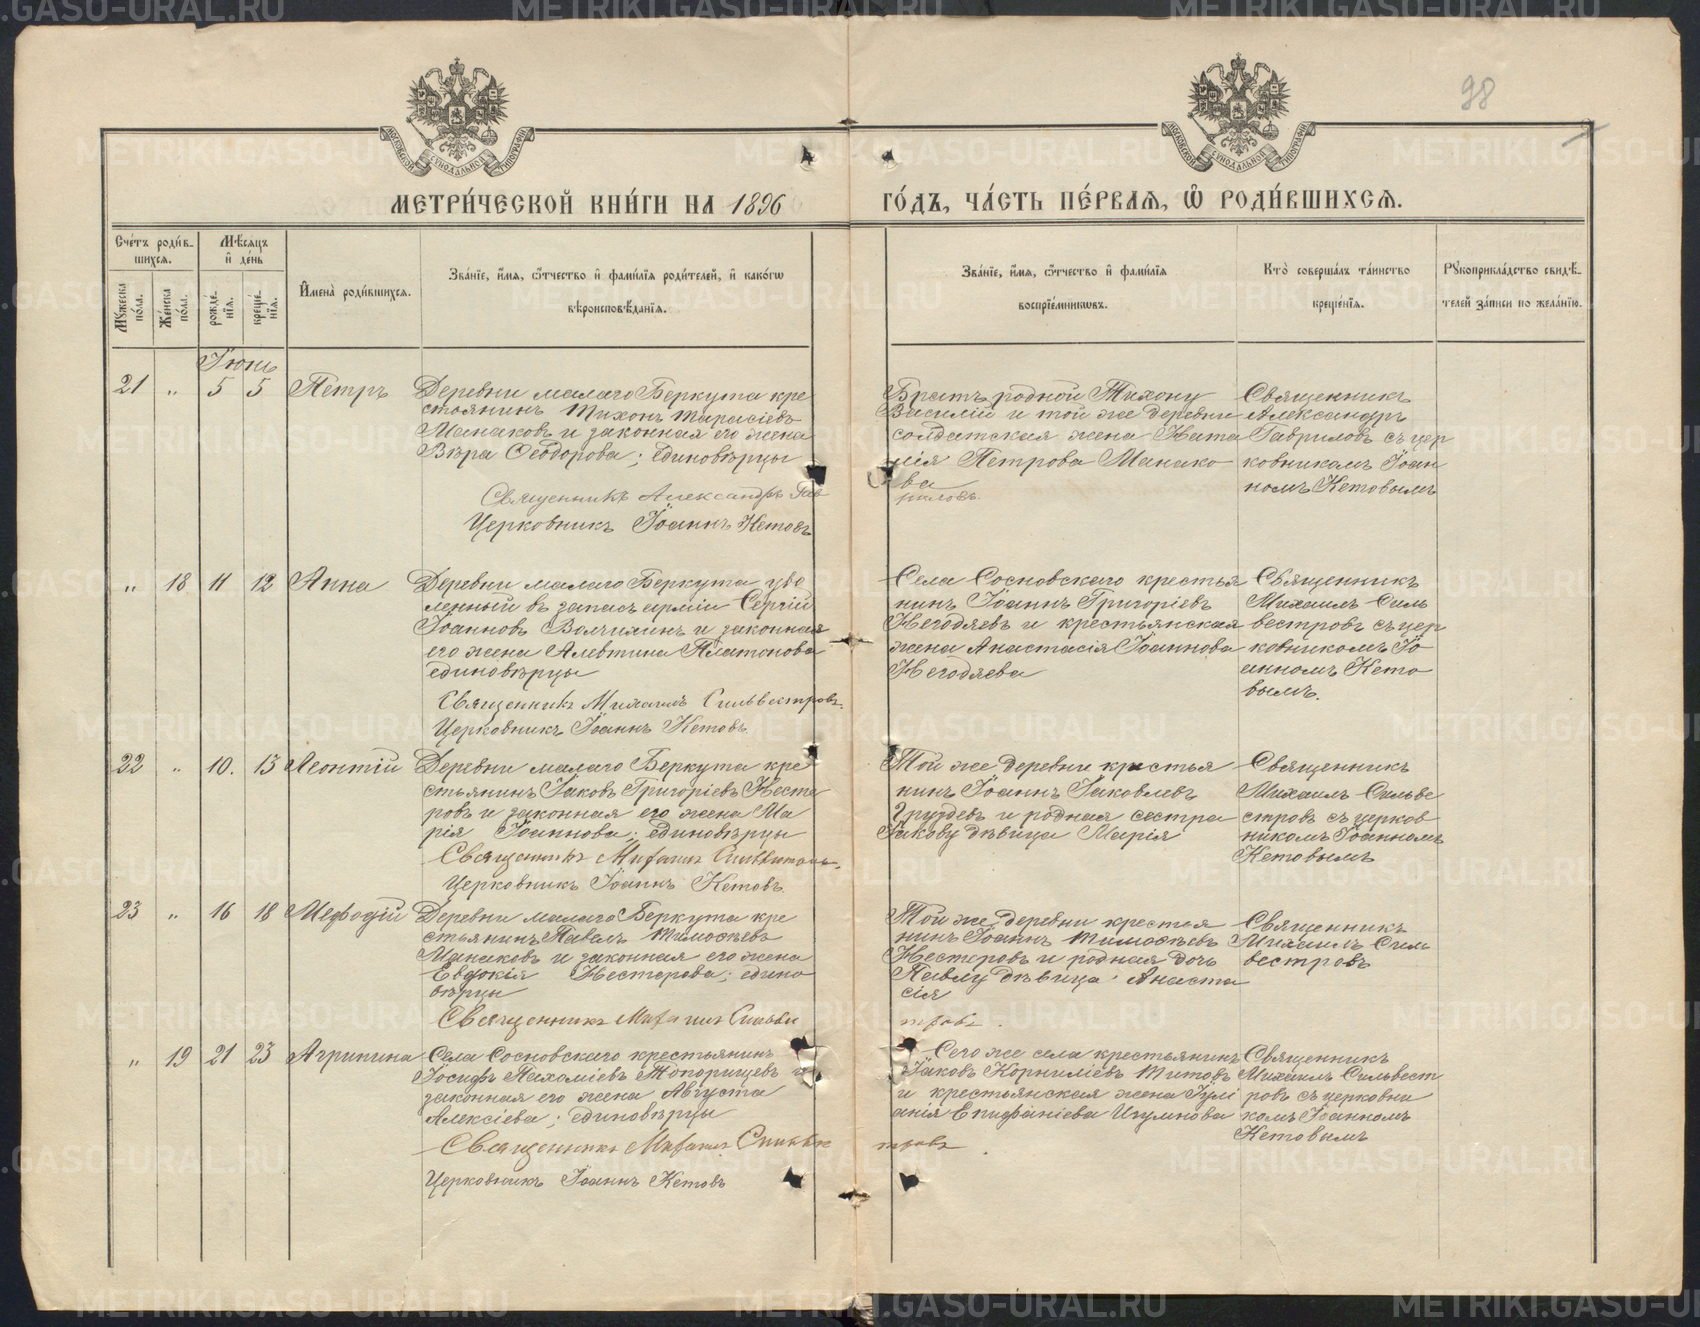 98
МЕТРИ́ЧЕСКОЙ КНИ́ГИ НА 1896 ГО́ДЪ, ЧА́СТЬ ПЕ́РВАЯ, Ѽ РОДИ́ВШИХСЯ.
Сче́тъ роди́в-
шихся.
Мꙋ́жеска по́ла.
Же́нска по́ла.
Мѣ́сяцъ и де́нь
рожде́-
нїя.
креще́-
нїя.
И҆мена̀ роди́вшихся.
Зва́нїе, и҆́мя, ѻ҆́тчество и҆ фами́лїя роди́телей, и҆ како́гѡ
вѣроисповѣ́данїя.
Зва́нїе, и҆́мя, ѻ҆́тчество и҆ фами́лїя
воспрїе́мникѡвъ.
Кто̀ соверша́лъ та́инство
креще́нїя.
Рꙋкоприкла́дство свидѣ́-
телей за́писи по жела́нїю.
Іюнь
21 " 5 5 Петръ
Деревни малаго Беркута кре
стоянинъ Тихонъ Тарасіевъ
Манаковъ и законная его жена
Вѣра Ѳеодорова; единовѣрцы
Священникъ Александръ Гав
риловъ.
Церковникъ Іоаннъ Кетовъ
Братъ родной Тихону
Василій и той же деревни
солдатская жена Ната
лія Петрова Манако
ва
Священникъ
Александръ
Гавриловъ съ цер
ковникомъ Іоан
номъ Кетовымъ
" 18 11 12 Анна
Деревни малаго Беркута уво
ленный въ запасъ арміи Сергій
Іоанновъ Волчихинъ и законная
его жена Алевтина Платонова
единовѣрцы
Священникъ Михаилъ Сильвестровъ.
Церковникъ Іоаннъ Кетовъ
Села Сосновскаго крестья
нинъ Іоаннъ Григоріевъ
Негодяевъ и крестьянская
жена Анастасія Іоаннова
Негодяева
Священникъ
Михаилъ Силь
вестровъ съ цер
ковникомъ Іо
анномъ Кето
вымъ.
22 " 10. 13 Леонтій
Деревни малаго Беркута кре
стьянинъ Іаковъ Григоріевъ Несте
ровъ и законная его жена Ма
рія Іоаннова; единовѣрцы
Священникъ Михаилъ
Церковникъ Іоаннъ Кетовъ
Той же деревни крестья
нинъ Іоаннъ Іаковлевъ
Груздевъ и родная сестра
Іакову дѣвица Марія
Священникъ
Михаилъ Сильве
стровъ съ церков
никомъ Іоанномъ
Кетовымъ
23 " 16 18 Меѳодій
Деревни малаго Беркута кре
стьянинъ Павелъ Тимоѳеевъ
Манаковъ и законная его жена
Евдокія Нестерова; едино
вѣрцы
Священникъ Михаилъ Сильве
тровъ.
Той же деревни крестья
нинъ Іоаннъ Тимоѳеевъ
Нестеровъ и родная дочь
Павлу дѣвица Анаста
сія
Священникъ
Михаилъ Силь
вестровъ
" 19 21 23 Агрипина
Села Сосновскаго крестьянинъ
Іосифъ Пахоміевъ Топорищевъ и
законная его жена Августа
Алексіева; единовѣрцы
Священникъ Михаилъ Сильве
тровъ.
Церковникъ Іоаннъ Кетовъ
Сего же села крестьянинъ
Іаковъ Корниліевъ Титовъ
и крестьянская жена Іулі
анія Епифаніева Игумнова
Священникъ
Михаилъ Сильвест
ровъ съ церковни
комъ Іоанномъ
Кетовымъ